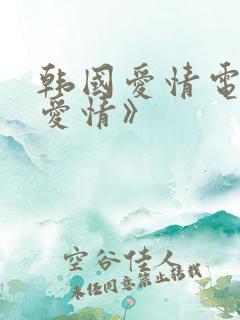 韩國爱情電
爱情》
空谷佳人
未经同意禁止转载